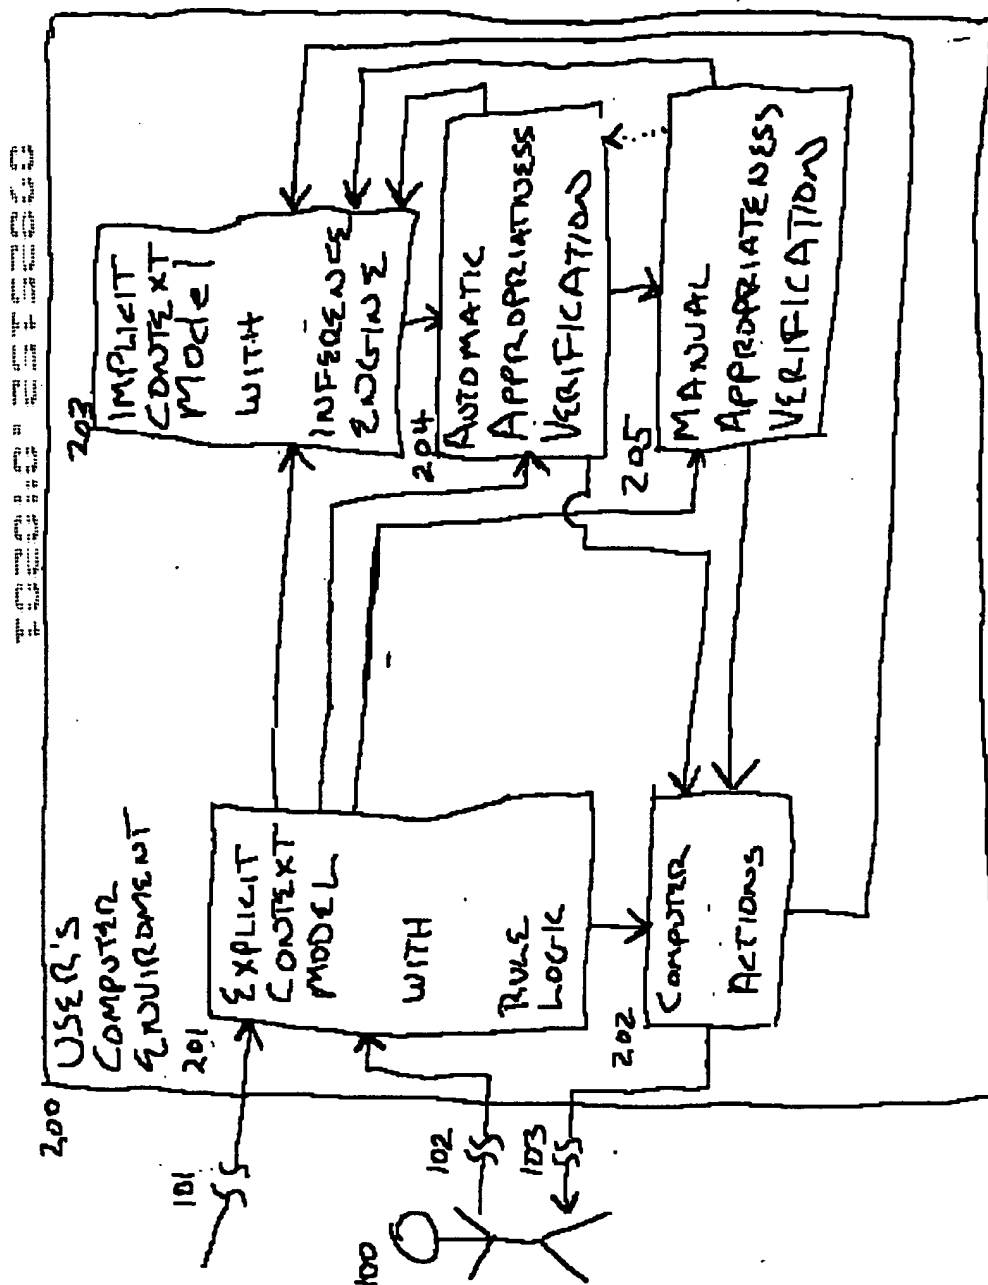 200
USER'S
COMPUTER
ENVIRONMENT
201
EXPLICIT
CONTEXT
MODEL
WITH
RULE
LOGIC
202
COMPUTER
ACTIONS
203
IMPLICIT
CONTEXT
MOdel
WITH
INFERENCE
ENGINE
204
AUTOMATIC
APPROPRIATNESS
VERIFICATION
205
MANUAL
APPROPRIATENESS
VERIFICATION
101
102
103
100